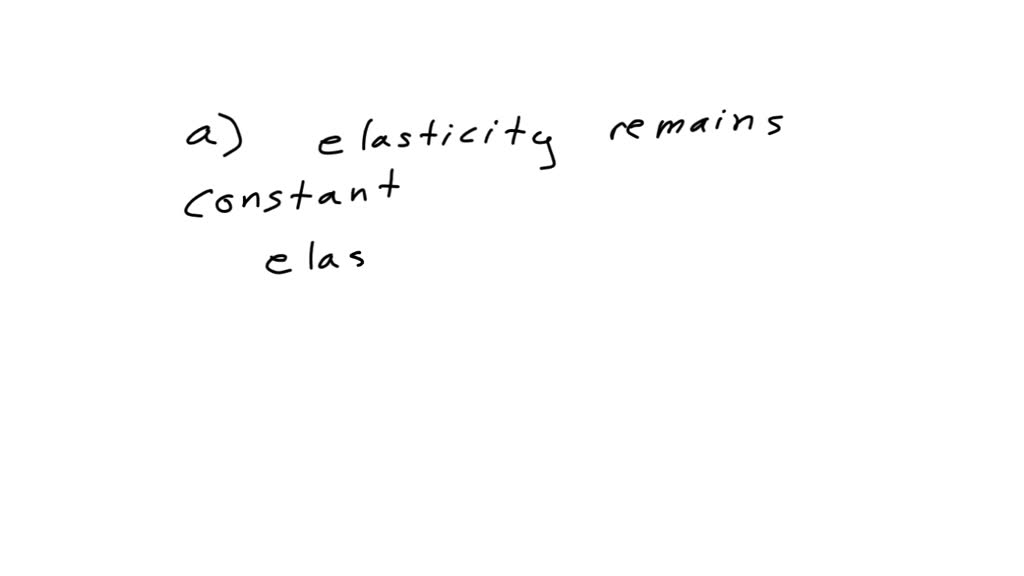 a) elasticity remains
constant
elas